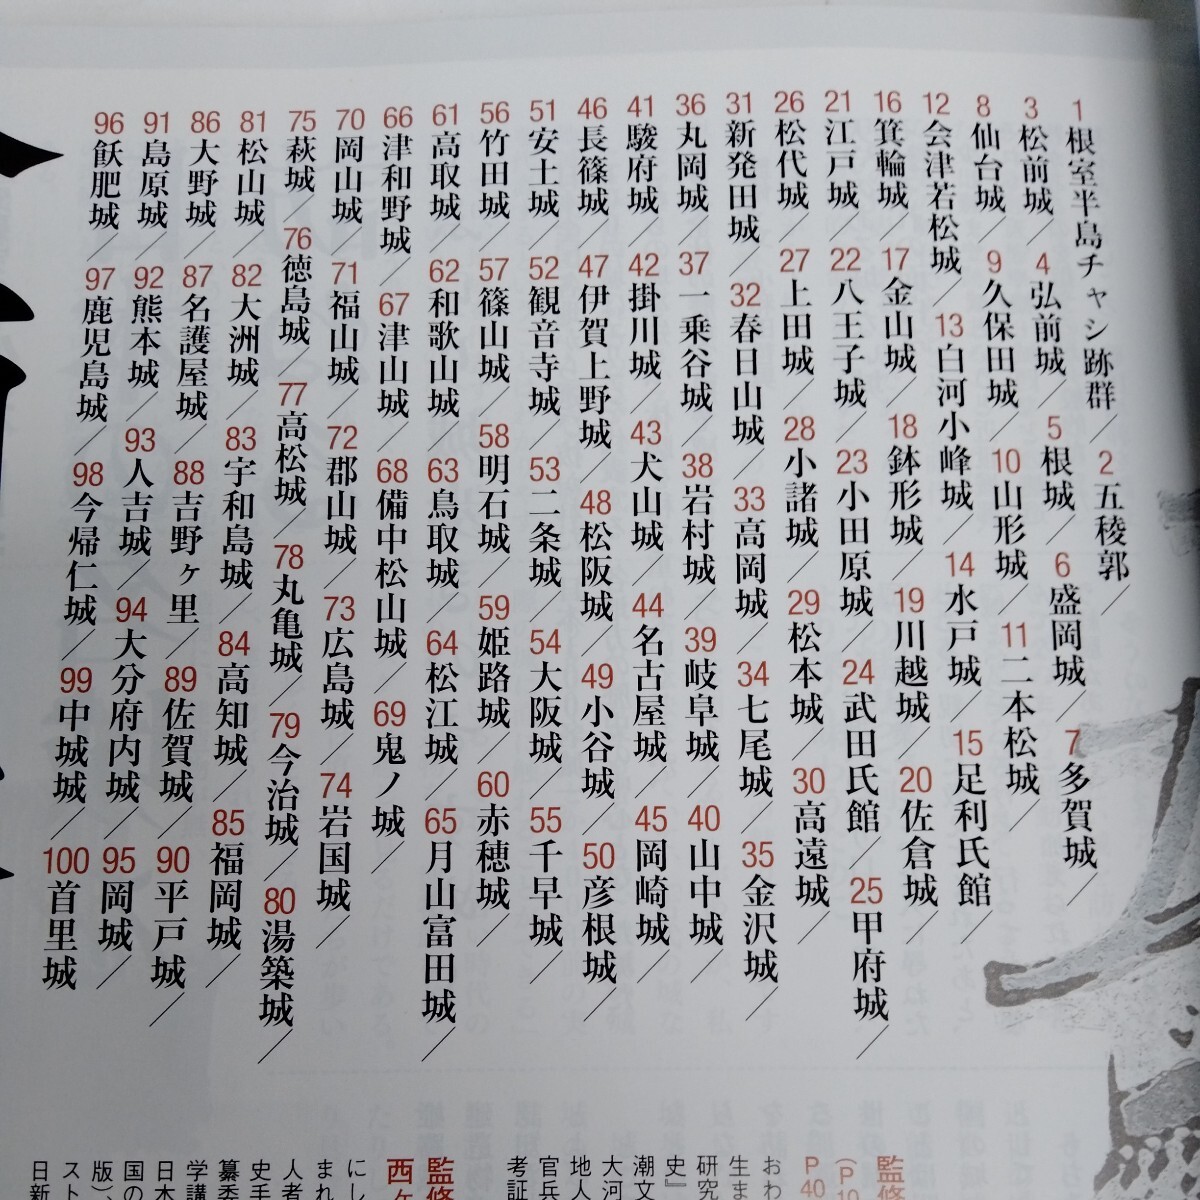 1 根室半島チャシ跡群／2 五稜郭／
3 松前城／4 弘前城／5 根城／6 盛岡城／7 多賀城／
8 仙台城／9 久保田城／10 山形城／11 二本松城／
12 会津若松城／13 白河小峰城／14 水戸城／15 足利氏館／
16 箕輪城／17 金山城／18 鉢形城／19 川越城／20 佐倉城／
21 江戸城／22 八王子城／23 小田原城／24 武田氏館／25 甲府城／
26 松代城／27 上田城／28 小諸城／29 松本城／30 高遠城／
31 新発田城／32 春日山城／33 高岡城／34 七尾城／35 金沢城／
36 丸岡城／37 一乗谷城／38 岩村城／39 岐阜城／40 山中城／
41 駿府城／42 掛川城／43 犬山城／44 名古屋城／45 岡崎城／
46 長篠城／47 伊賀上野城／48 松阪城／49 小谷城／50 彦根城／
51 安土城／52 観音寺城／53 二条城／54 大阪城／55 千早城／
56 竹田城／57 篠山城／58 明石城／59 姫路城／60 赤穂城／
61 高取城／62 和歌山城／63 鳥取城／64 松江城／65 月山富田城／
66 津和野城／67 津山城／68 備中松山城／69 鬼ノ城／
70 岡山城／71 福山城／72 郡山城／73 広島城／74 岩国城／
75 萩城／76 徳島城／77 高松城／78 丸亀城／79 今治城／80 湯築城／
81 松山城／82 大洲城／83 宇和島城／84 高知城／85 福岡城／
86 大野城／87 名護屋城／88 吉野ヶ里／89 佐賀城／90 平戸城／
91 島原城／92 熊本城／93 人吉城／94 大分府内城／95 岡城／
96 飫肥城／97 鹿児島城／98 今帰仁城／99 中城城／100 首里城
監修
(P10
P40
おわ
生ま
研究
史』
潮文
大河
地人
官兵
考証
監修
西ヶ
にし
まれ
人者
史手
纂委
学講
日本
国の
版）、
スト
日新